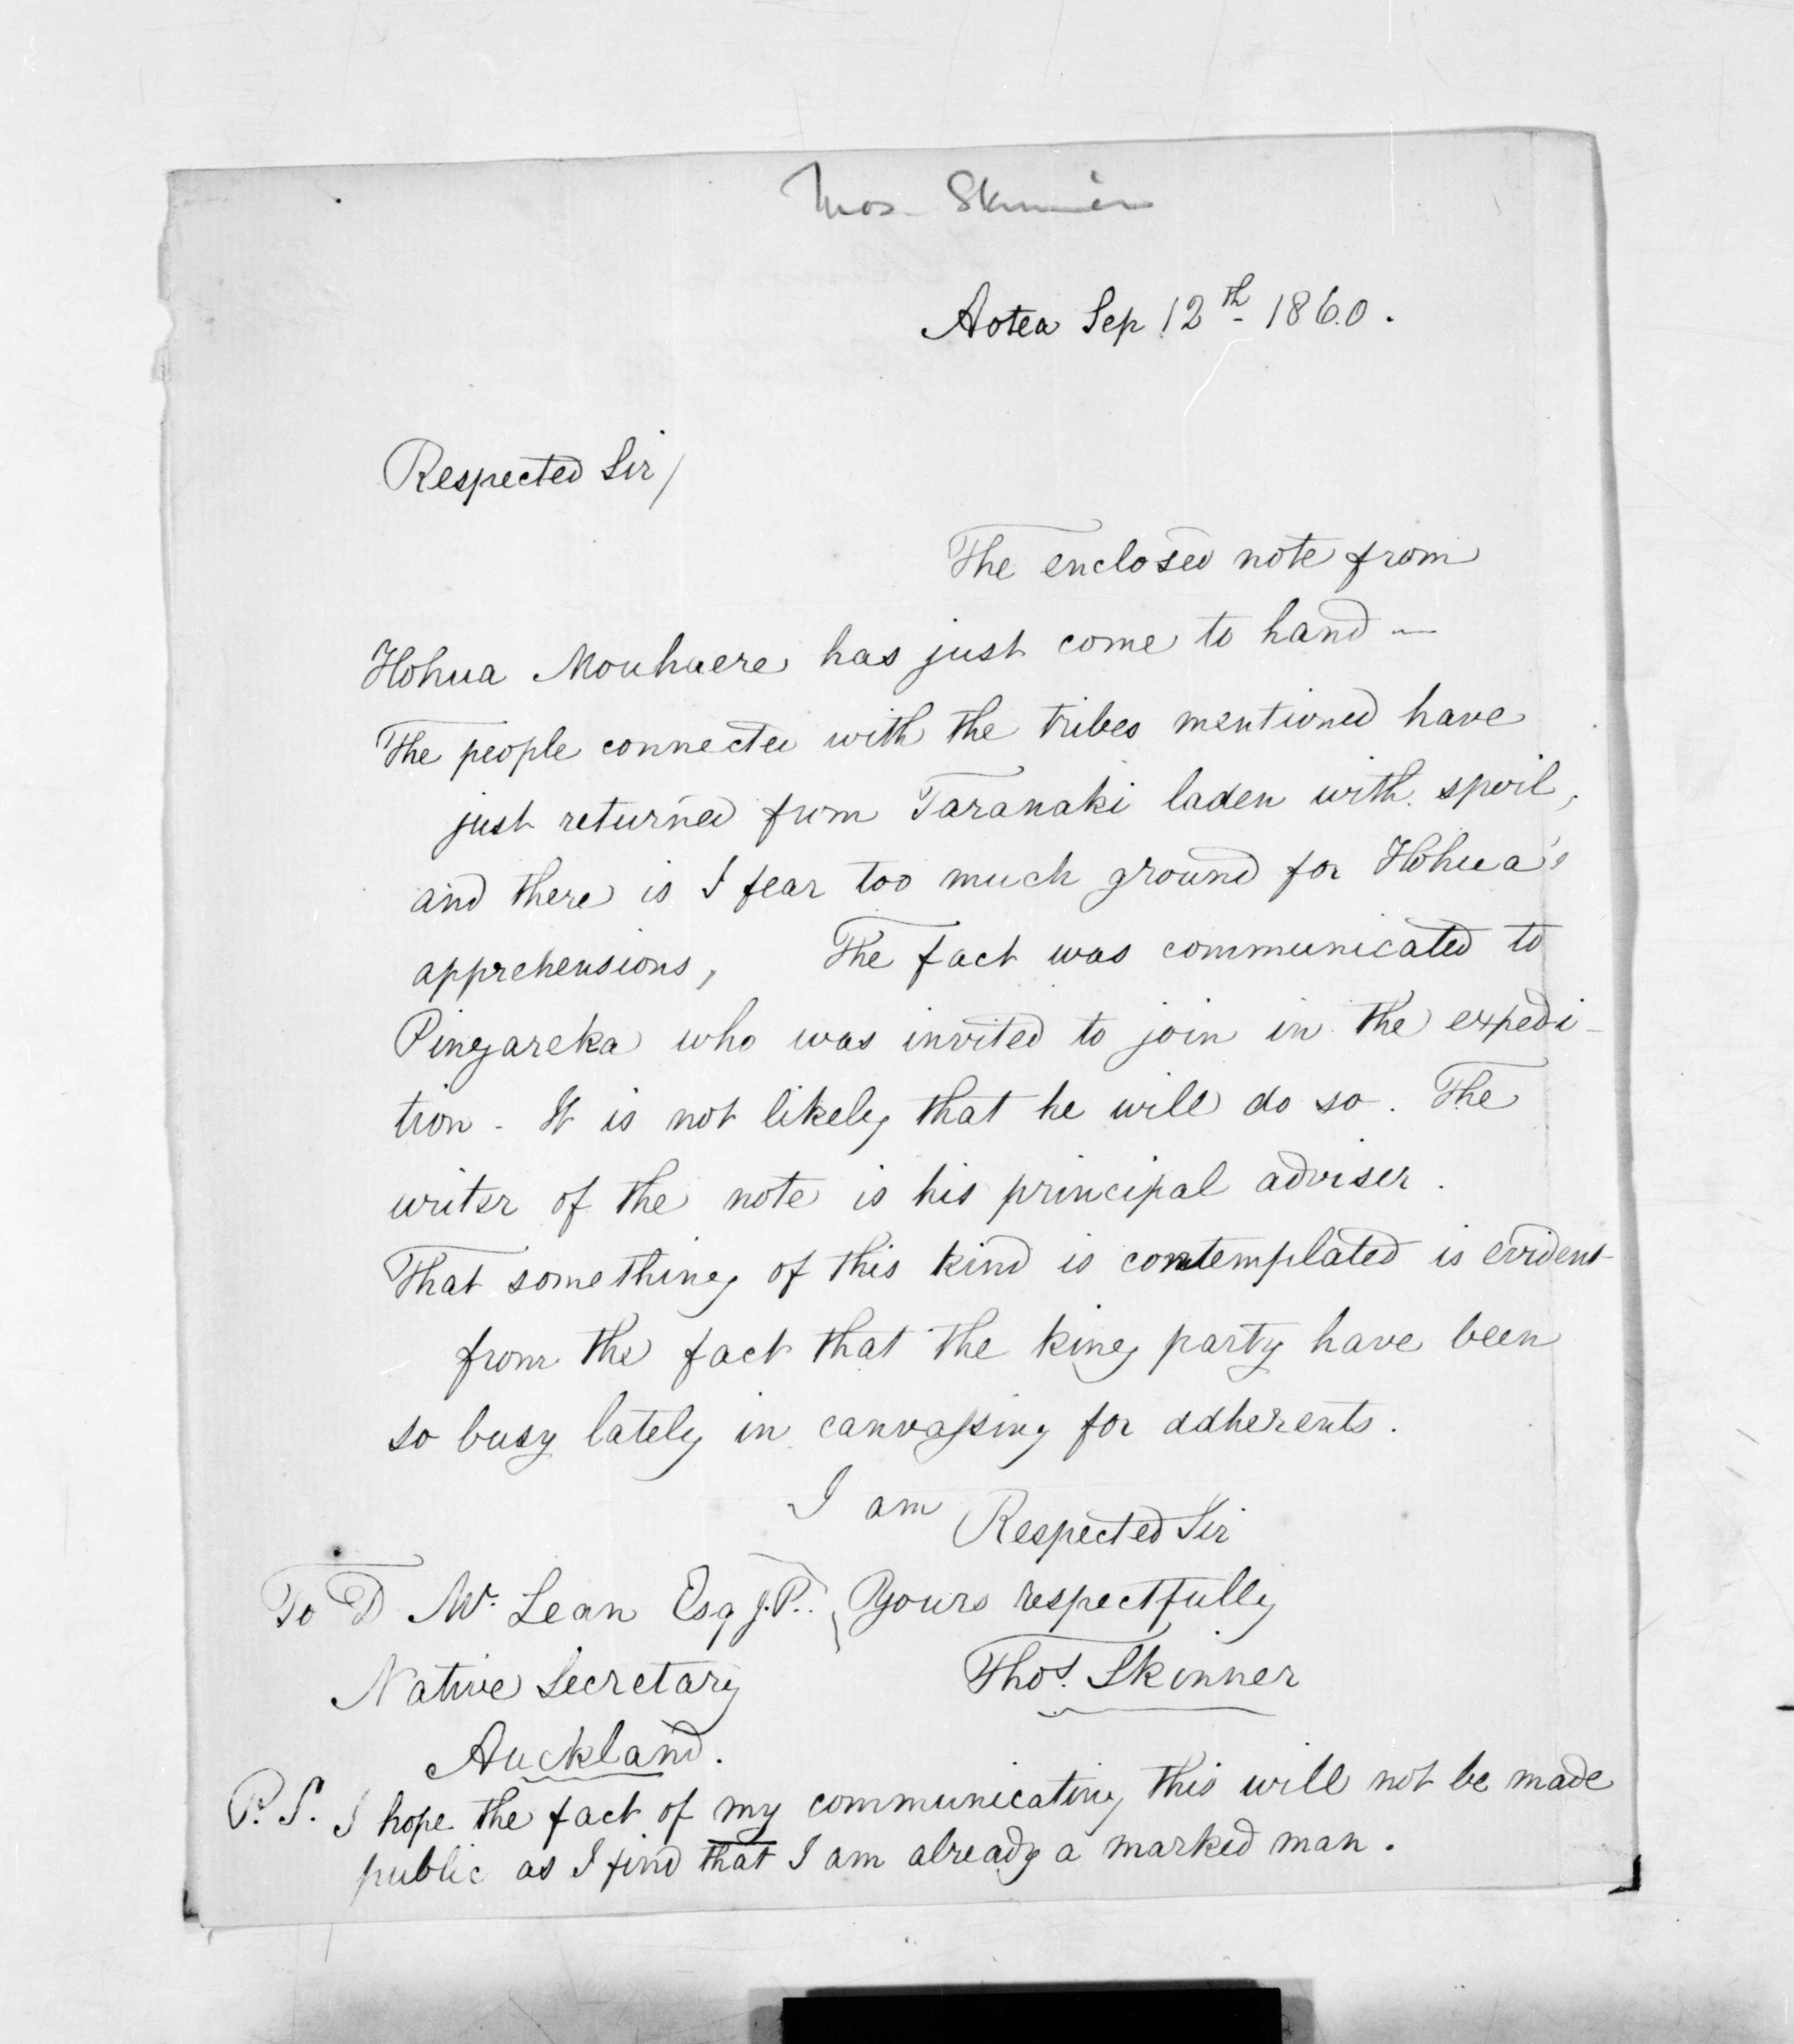 Thos Skinner
Aotea Sep 12th 1860.
Respected Sir/
The enclosed note from
Hohua Mouhaere has just come to hand —
The people connected with the tribes mentioned have
just returned from Taranaki laden with spoil,
and there is I fear too much ground for Hohua's
apprehensions, The fact was communicated to
Pingareka who was invited to join in the expedi-
tion - It is not likely that he will do so. The
writer of the note is his principal adviser.
That something of this kind is contemplated is evident
from the fact that the king party have been
so busy lately in canvassing for adherents.
I am Respected Sir
Yours respectfully
Thos. Skinner
To D McLean Esq J.P.
Native Secretary
Auckland.
P.S. I hope the fact of my communicating this will not be made
public as I find that I am already a marked man.